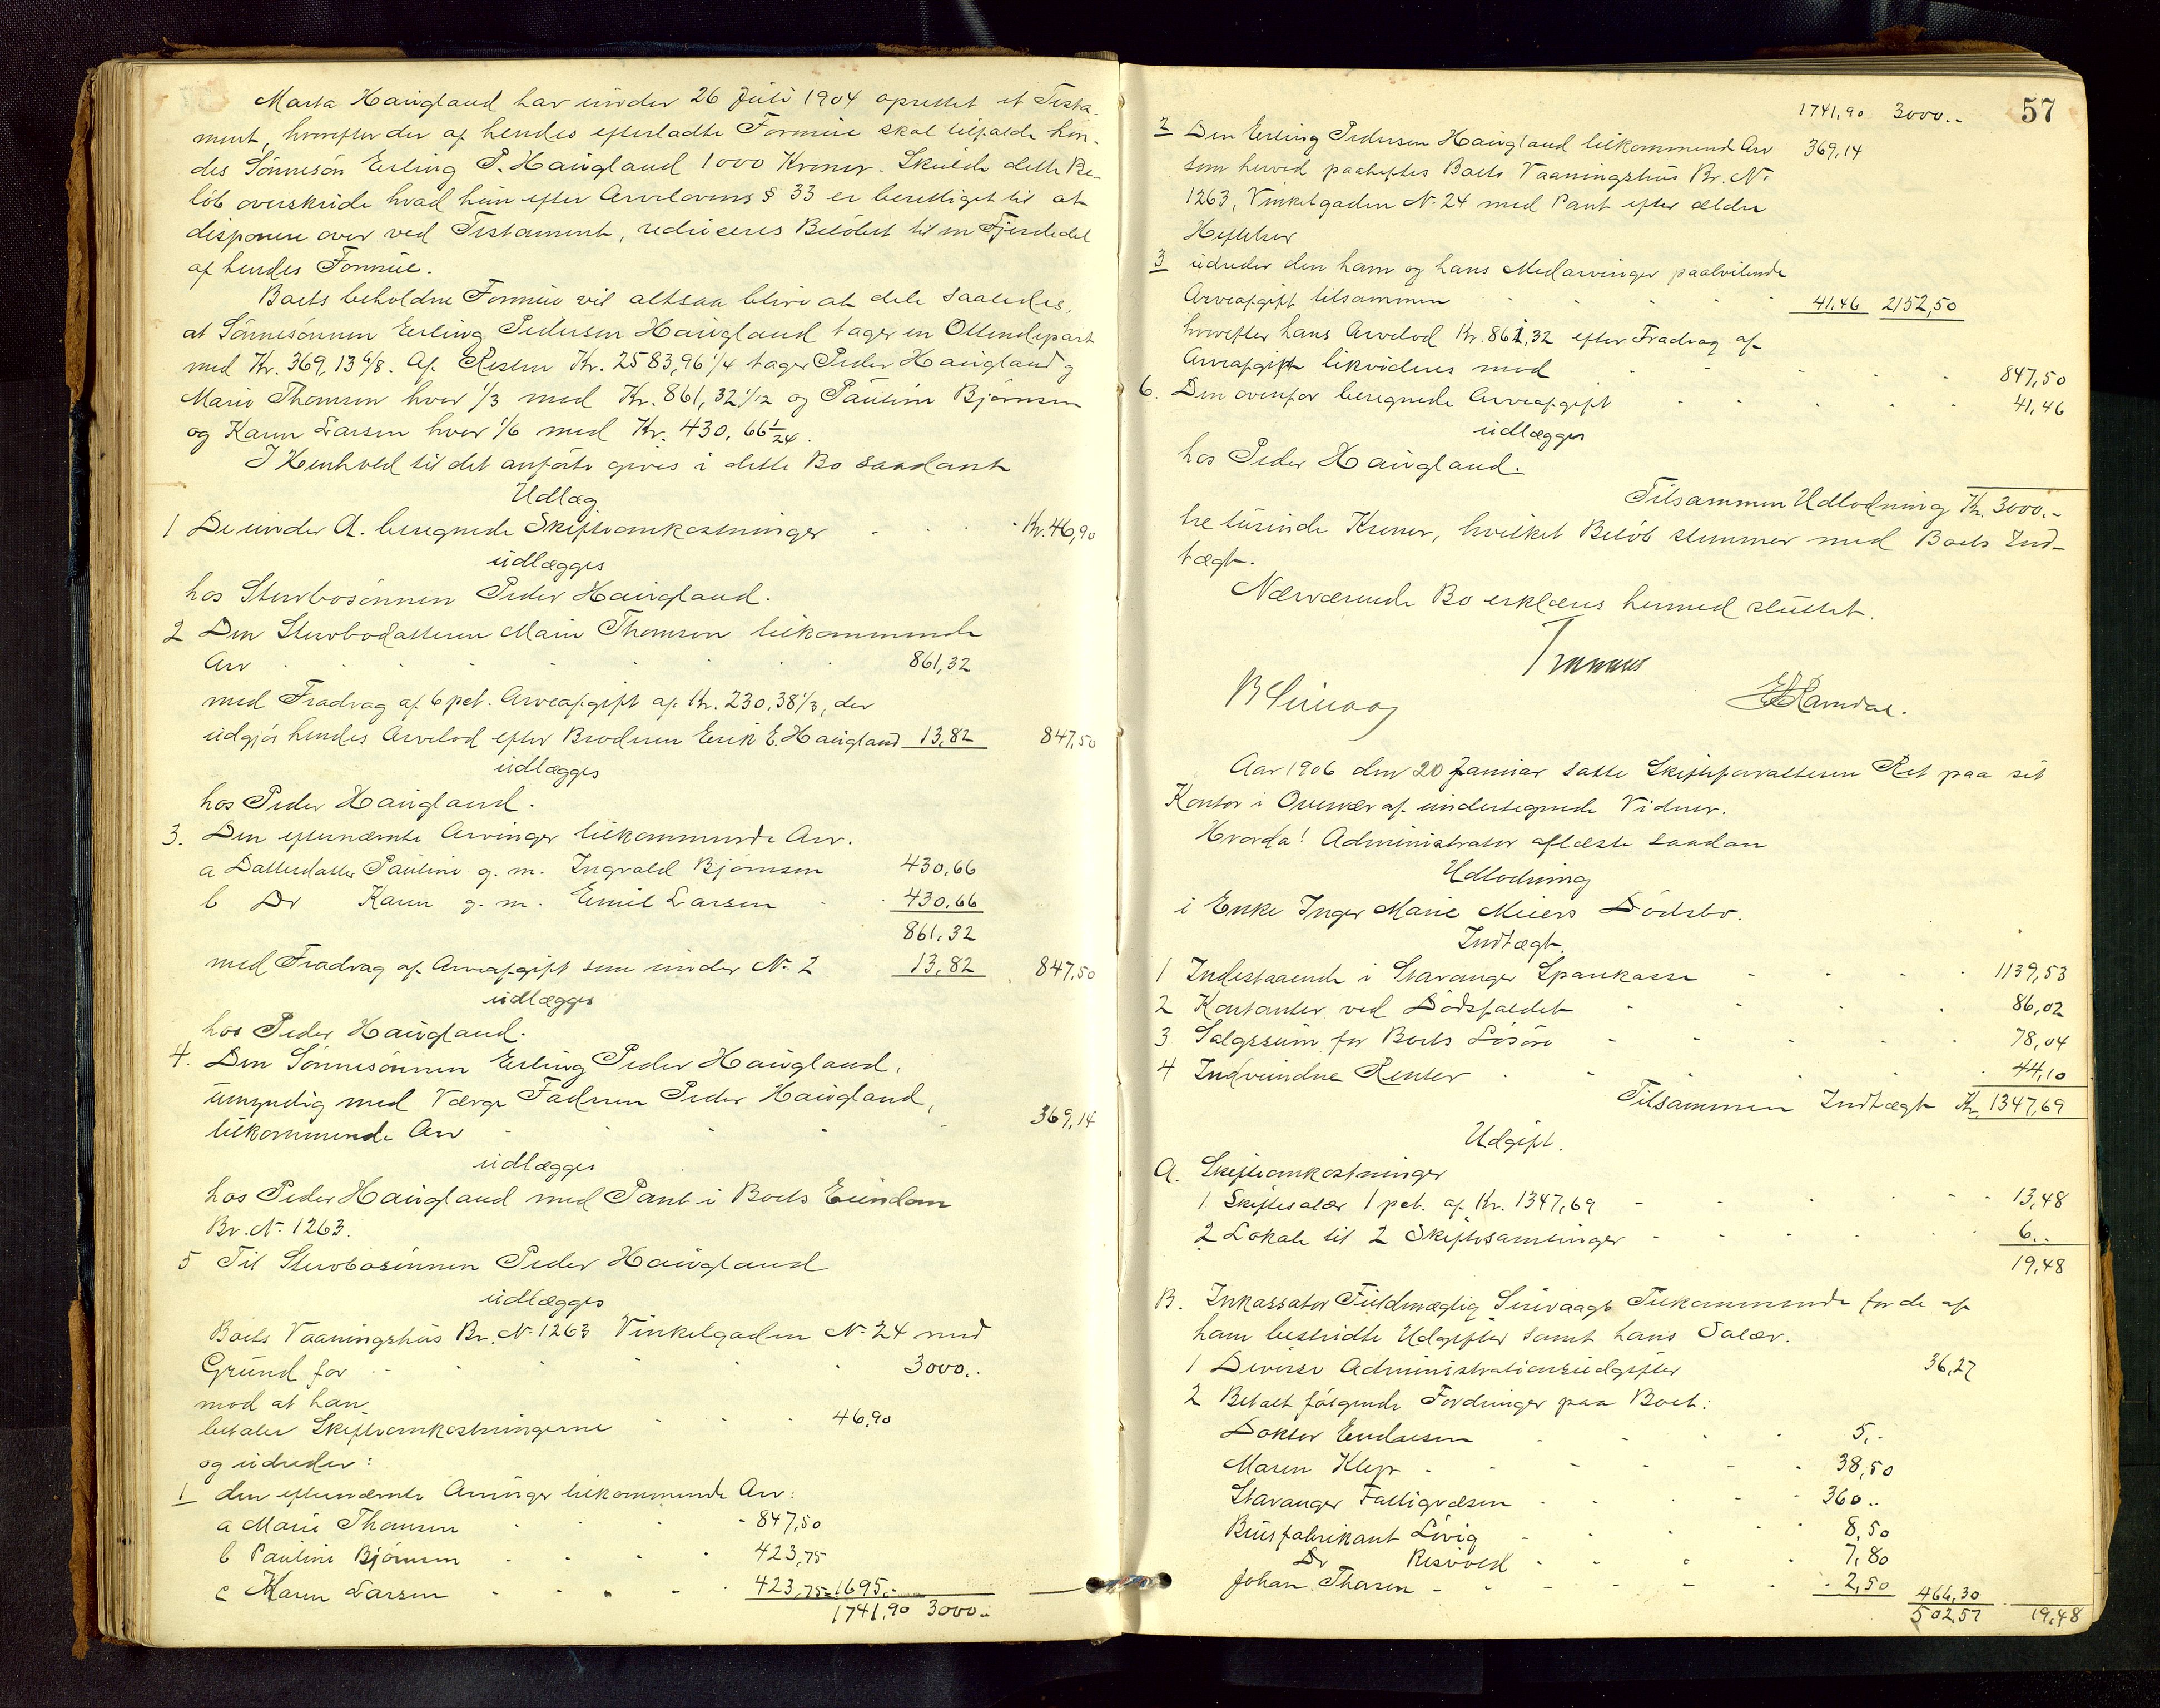 Marta Haugland har under 26 Juli 1904 oprettet et Testa-
ment, hvorefter der af hendes efterladte Formue skal tilfalde hen-
des Sönnesön Erling P. Haugland 1000 Kroner. Skulde dette Be-
löb overskride hvad hun efter Arvelovens § 33 er berettiget til at
disponere over ved Testament, reduceres Belöbet til en Fjerdedel
af hendes Formue.
Boets beholdne Formue vil altsaa blive at dele saaledes,
at Sönnesönnen Erling Pedersen Haugland tager en Ottendepart
med Kr. 369,13 6/8. Af Resten Kr. 2583,96 1/4 tager Peder Haugland og
Marie Thomsen hver 1/3 med Kr. 861,32 1/12 og Pauline Björnsen
og Karen Larsen hver 1/6 med Kr. 430,66 1/24.
I Henhold til det anförte gives i dette Bo saadant
Udlæg
1 De under A. beregnede Skifteomkostninger Kr. 46,90
udlægges
hos Stervbosönnen Peder Haugland.
2 Den Stervbodatteren Marie Thomsen tilkommende
Arv 861,32
med Fradrag af 6 pct. Arveafgift af Kr. 230,38 1/3, der
udgjör hendes Arvelod efter Broderen Erik E. Haugland 13,82 847,50
udlægges
hos Peder Haugland.
3. Den efternævnte Arvinger tilkommende Arv.
a Datterdatter Pauline g. m. Ingvald Björnsen 430,66
b Do Karen g. m. Emil Larsen 430,66
861,32
med Fradrag af Arveafgift som under No 2 13,82 847,50
udlægges
hos Peder Haugland.
4. Den Sönnesönnen Erling Peder Haugland,
umyndig med Værge Faderen Peder Haugland,
tilkommende Arv 369,14
udlægges
hos Peder Haugland med Pant i Boets Eiendom
Br. No 1263.
5 Til Stervbosönnen Peder Haugland
udlægges
Boets Vaaningshus Br. No 1263 Vinkelgaden No 24 med
Grund for 3000..
mod at han
betaler Skifteomkostningerne 46,90
og udreder:
1 den efternævnte Arvinger tilkommende Arv:
a Marie Thomsen 847,50
b Pauline Björnsen 423,75
c Karen Larsen 423,75 = 1695.-
1741,90 3000..
57
1741,90 3000..
2 Den Erling Pedersen Haugland tilkommende Arv 369,14
som herved paaheftes Boets Vaaningshus Br. No
1263, Vinkelgaden No 24 med Pant efter ældre
Heftelser
3 udreder den ham og hans Medarvinger paahvilende
Arveafgift tilsammen 41,46 2152,50
hvorefter hans Arvelod Kr. 861,32 efter Fradrag af
Arveafgift likvideres med 847,50
6. Den ovenfor beregnede Arveafgift 41,46
udlægges
hos Peder Haugland.
Tilsammen Udlodning Kr. 3000.-
tre tusinde Kroner, hvilket Belöb stemmer med Boets Ind-
tægt.
Nærværende Bo erklæres hermed sluttet.
Aar 1906 den 20 Januar satte Skifteforvalteren Ret paa sit
Kontor i Overvær af undertegnede Vidner.
Hvorda! Administrator aflæste saadan
Udlodning
i Enke Inger Marie Meiers Dödsbo.
Indtægt.
1 Indestaaende i Stavanger Sparekasse 1139,53
2 Kontanter ved Dödsfaldet 86,02
3 Salgssum for Boets Lösöre 78,04
4 Indvundne Renter 44,10
Tilsammen Indtægt Kr. 1347,69
Udgift.
A. Skifteomkostninger
1 Skiftesalær 1 pct. af Kr. 1347,69 13,48
2 Lokale til 2 Skiftesamlinger 6..
19,48
B. Inkassator Fuldmægtig Sirevaags Tilkommende for de af
ham bestridte Udgifter samt hans Salær.
1 Diverse Administrationsudgifter 36,27
2 Betalt fölgende Fordringer paa Boet:
Doktor 5,-
Maren Klep 38,50
Stavanger Fattigvæsen 360..
Brusfabrikant Lövig 8,50
Do Risvold 7,80
Johan Thorsen 2,50 466,30
502,57 19,48